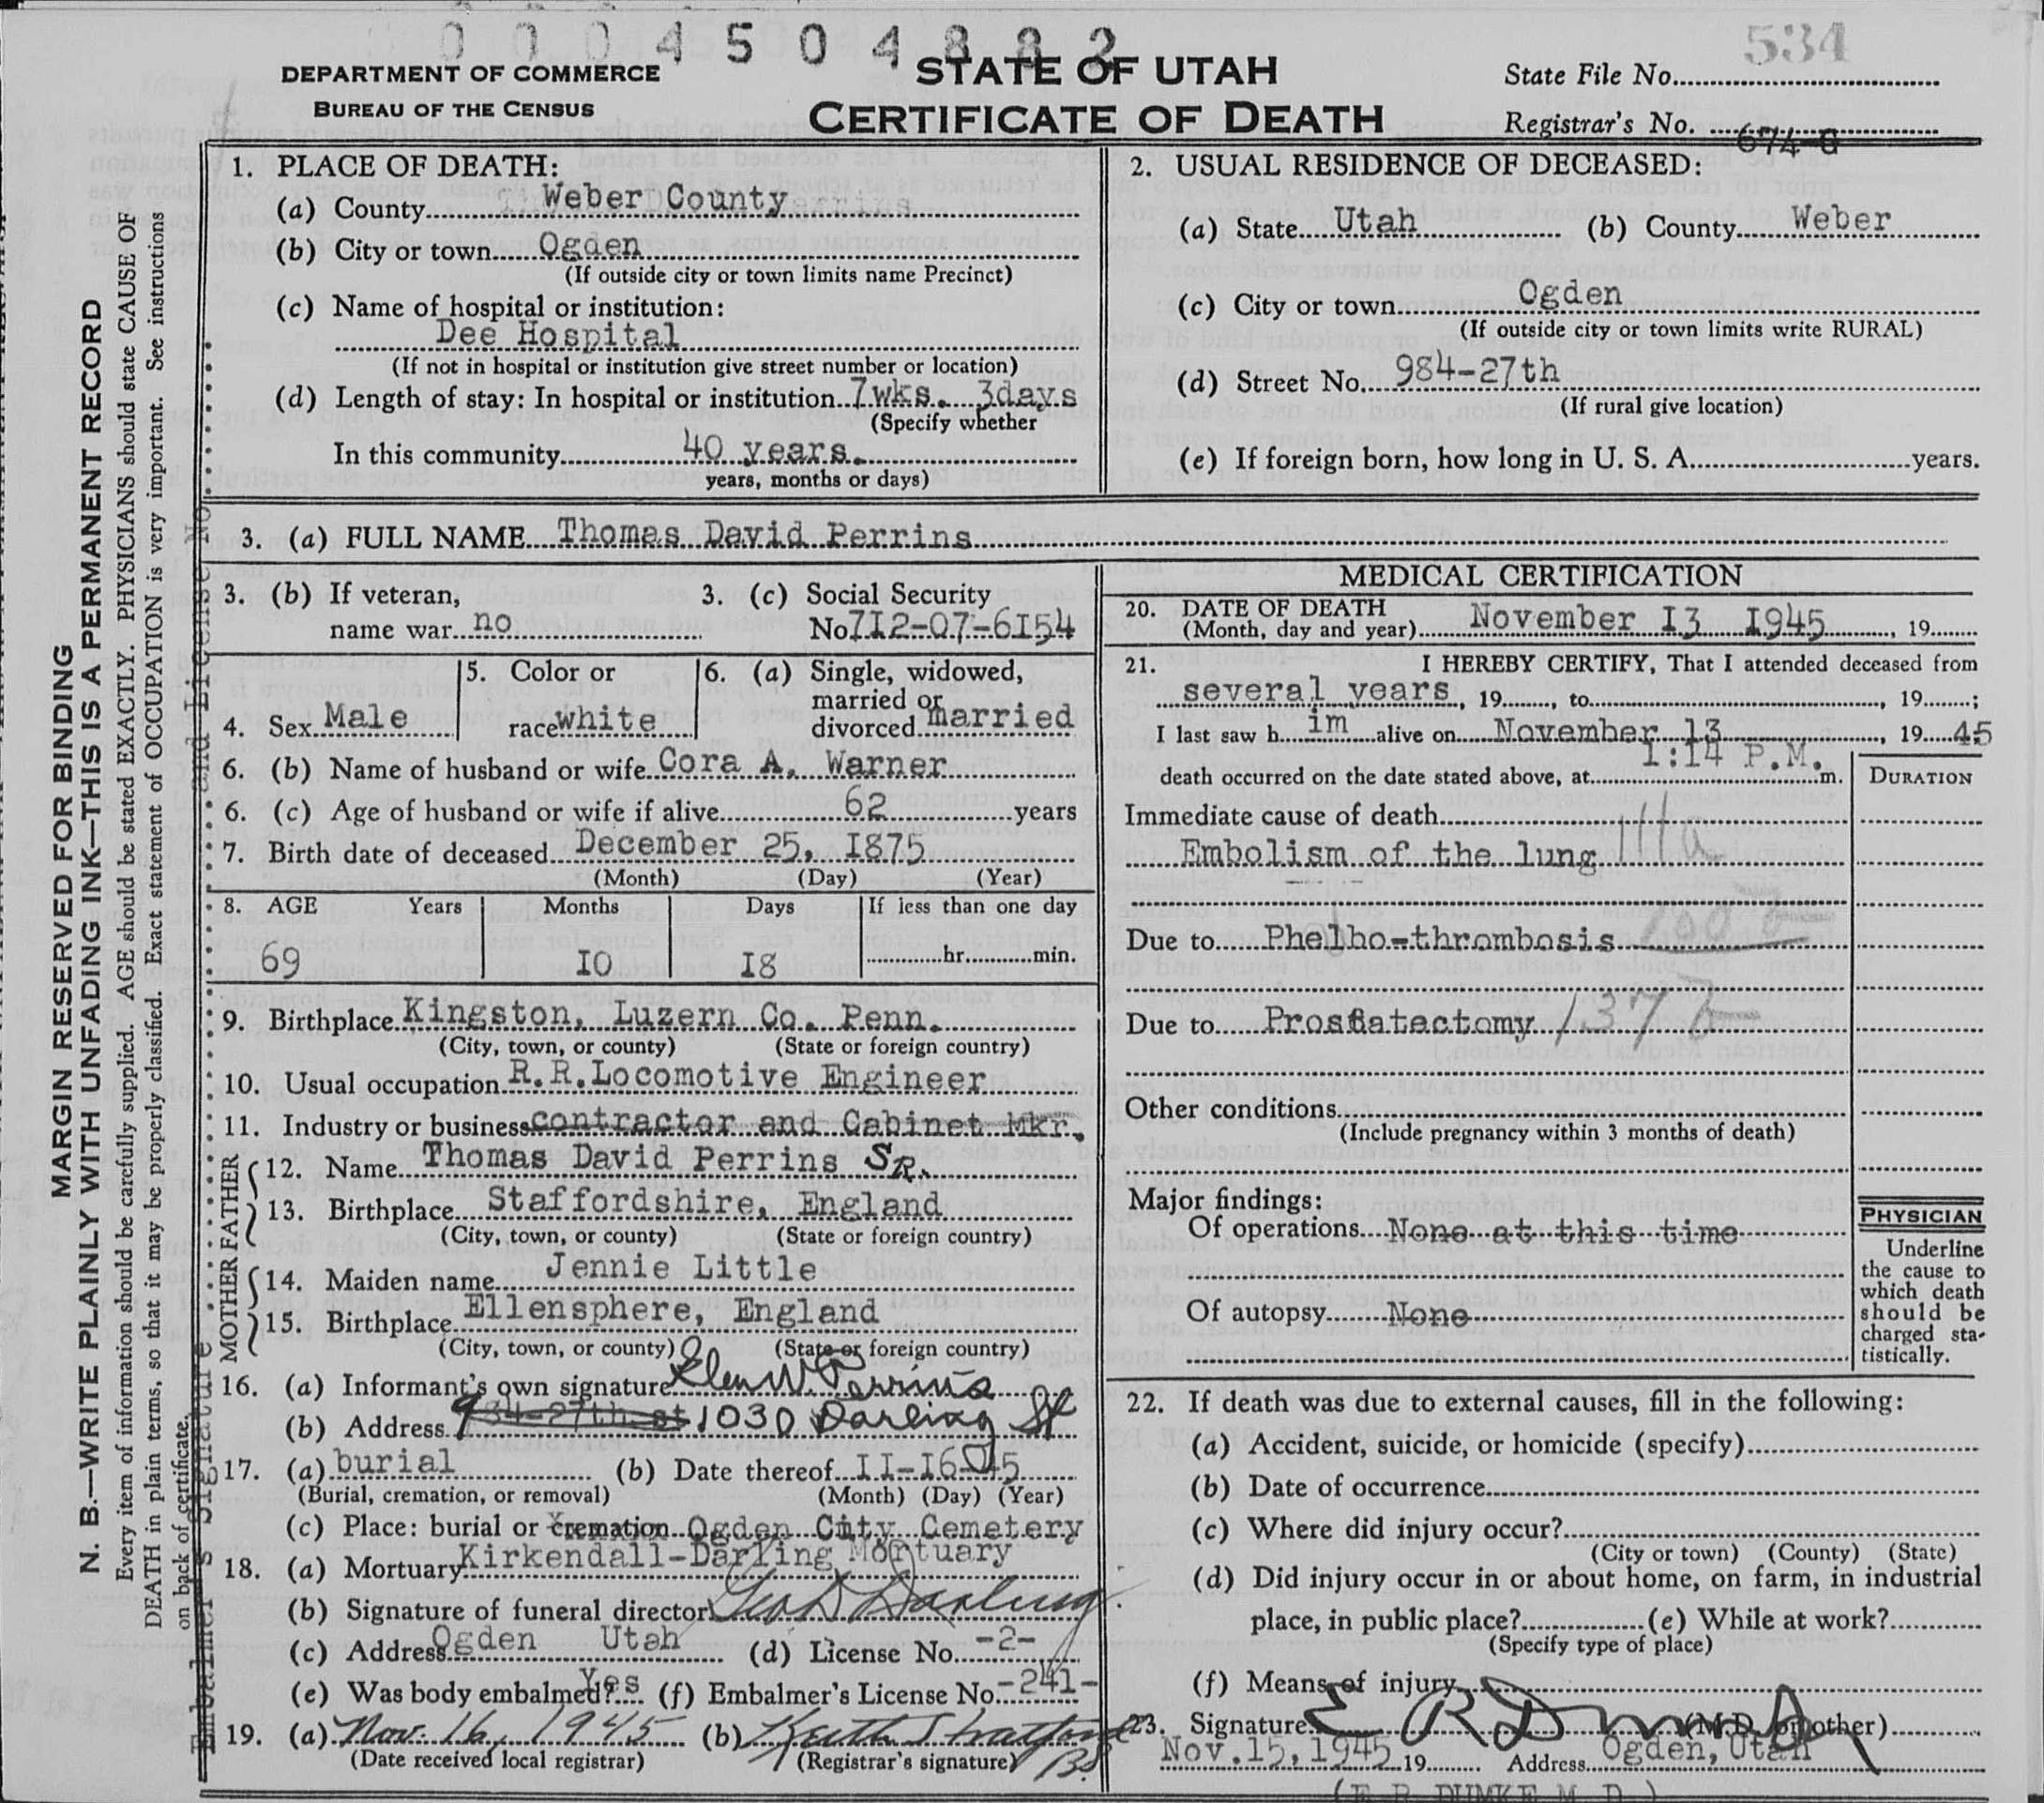 0 0 0 4 5 0 4 8 8 2
534
DEPARTMENT OF COMMERCE
BUREAU OF THE CENSUS
STATE OF UTAH
CERTIFICATE OF DEATH
State File No.
Registrar's No. 674-B
MARGIN RESERVED FOR BINDING
N. B.—WRITE PLAINLY WITH UNFADING INK—THIS IS A PERMANENT RECORD
Every item of information should be carefully supplied. AGE should be stated EXACTLY. PHYSICIANS should state CAUSE OF
DEATH in plain terms, so that it may be properly classified. Exact statement of OCCUPATION is very important. See instructions
on back of certificate.
Embalmer's Signature and License No.
1. PLACE OF DEATH:
(a) County Weber County
(b) City or town Ogden
(If outside city or town limits name Precinct)
(c) Name of hospital or institution:
Dee Hospital
(If not in hospital or institution give street number or location)
(d) Length of stay: In hospital or institution 7 wks. 3days
(Specify whether
In this community 40 years.
years, months or days)
2. USUAL RESIDENCE OF DECEASED:
(a) State Utah (b) County Weber
(c) City or town Ogden
(If outside city or town limits write RURAL)
(d) Street No. 984-27th
(If rural give location)
(e) If foreign born, how long in U. S. A. years.
3. (a) FULL NAME Thomas David Perrins
3. (b) If veteran,
name war no
3. (c) Social Security
No 712-07-6154
4. Sex Male
5. Color or
race white
6. (a) Single, widowed,
married or
divorced married
6. (b) Name of husband or wife Cora A. Warner
6. (c) Age of husband or wife if alive 62 years
7. Birth date of deceased December 25, 1875
(Month) (Day) (Year)
8. AGE Years Months Days If less than one day
69 10 18 hr. min.
9. Birthplace Kingston, Luzern Co. Penn.
(City, town, or county) (State or foreign country)
10. Usual occupation R.R.Locomotive Engineer
11. Industry or business contractor and Cabinet Mkr.
FATHER
12. Name Thomas David Perrins SR.
13. Birthplace Staffordshire, England
(City, town, or county) (State or foreign country)
MOTHER
14. Maiden name Jennie Little
15. Birthplace Ellensphere, England
(City, town, or county) (State or foreign country)
16. (a) Informant's own signature Glen W. Perrins
(b) Address 984-27th st 1030 Darling St
17. (a) burial (b) Date thereof 11-16-45
(Burial, cremation, or removal) (Month) (Day) (Year)
(c) Place: burial or cremation Ogden City Cemetery
18. (a) Mortuary Kirkendall-Darling Mortuary
(b) Signature of funeral director Geo D Darling
(c) Address Ogden Utah (d) License No. -2-
(e) Was body embalmed? Yes (f) Embalmer's License No. -241-
19. (a) Nov. 16, 1945 (b) Keith Stratford
(Date received local registrar) (Registrar's signature)
MEDICAL CERTIFICATION
20. DATE OF DEATH
(Month, day and year) November 13 1945, 19
21. I HEREBY CERTIFY, That I attended deceased from
several years, 19, to, 19;
I last saw h im alive on November 13, 19 45
death occurred on the date stated above, at 1:14 P.M. m.
DURATION
Immediate cause of death
Embolism of the lung 111a
Due to Phelbo-thrombosis
Due to Prostatectomy 137 b
Other conditions
(Include pregnancy within 3 months of death)
Major findings:
Of operations None at this time
Of autopsy None
PHYSICIAN
Underline
the cause to
which death
should be
charged sta-
tistically.
22. If death was due to external causes, fill in the following:
(a) Accident, suicide, or homicide (specify)
(b) Date of occurrence
(c) Where did injury occur?
(City or town) (County) (State)
(d) Did injury occur in or about home, on farm, in industrial
place, in public place? (e) While at work?
(Specify type of place)
(f) Means of injury
23. Signature E R Dumke (M.D. or other)
Nov.15,1945 19 Address Ogden, Utah
(E R DUMKE M. D.)